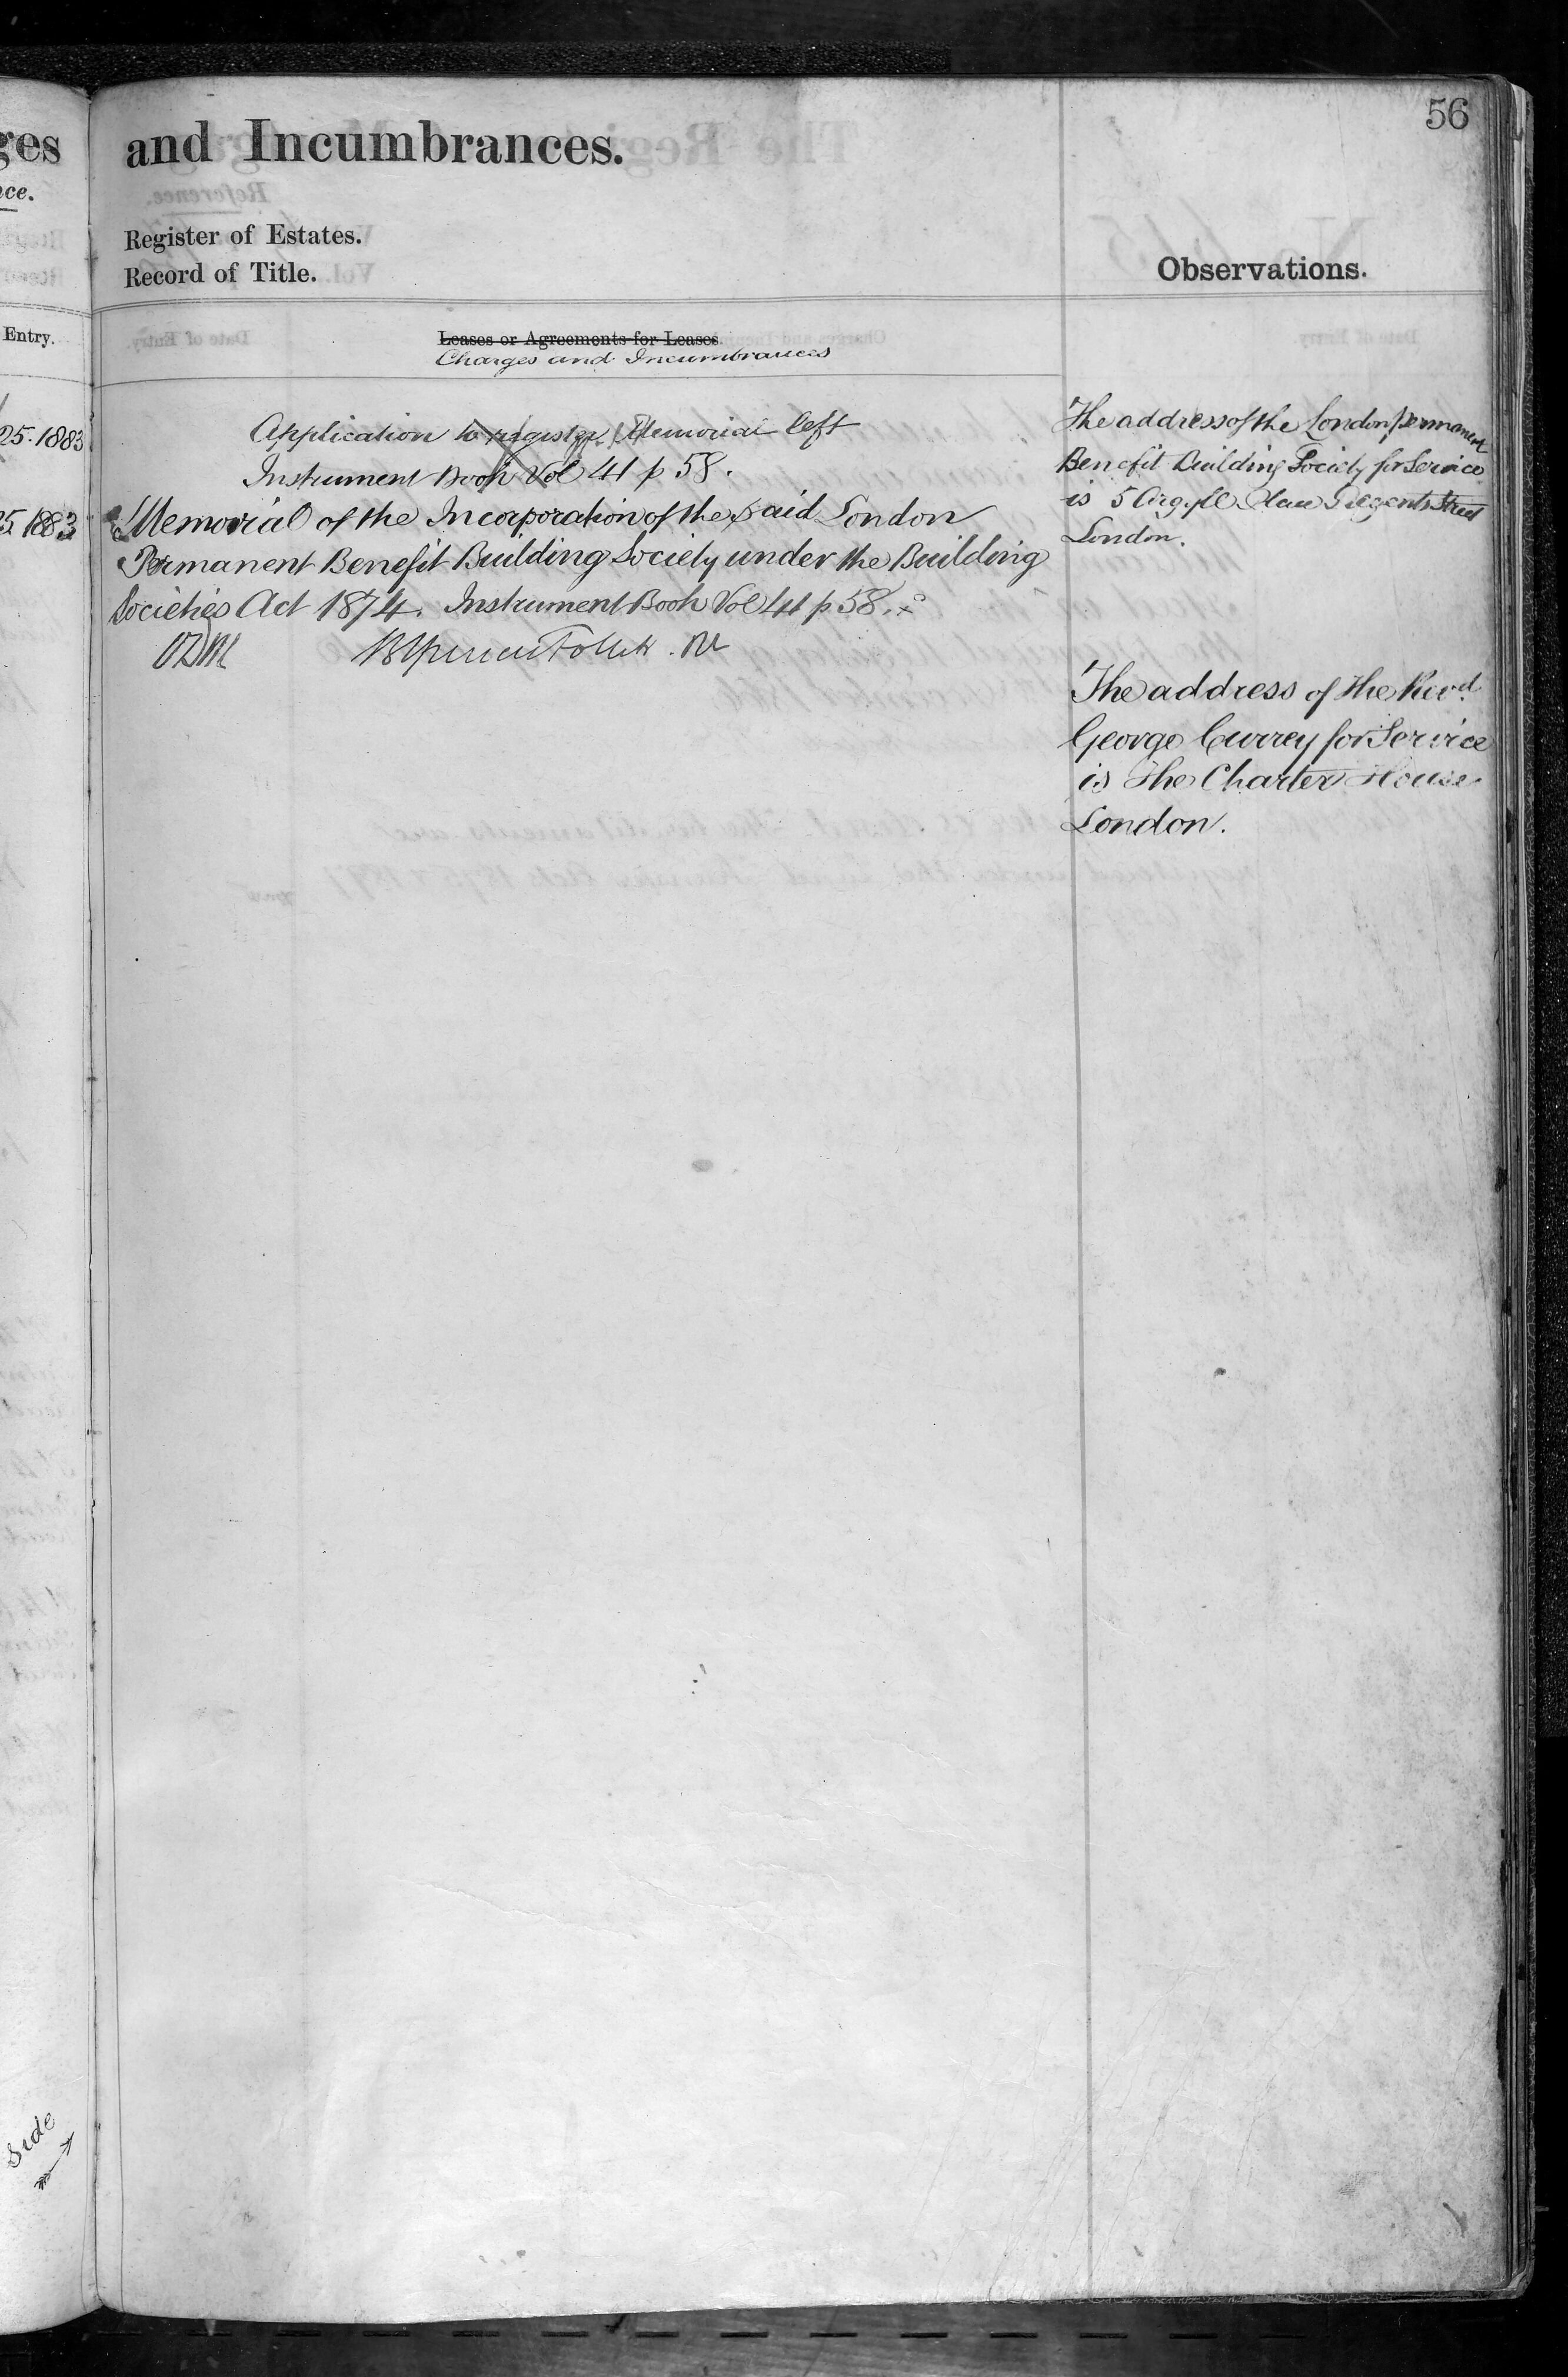 56
ges
and Incumbrances.
ce.
Register of Estates.
Record of Title.
Observations.
Entry.
Leases or Agreements for Leases
Charges and Incumbrances
25. 1883
Application to register Memorial left
Instrument Book Vol 41 p 58.
25 1883
Memorial of the Incorporation of the said London
Permanent Benefit Building Society under the Building
Societies Act 1874. Instrument Book Vol 41 p 58.
The address of the London Permanent
Benefit Building Society for Service
is 5 Argyll Place Regents Street
London.
The address of the Revd.
George Currey for Service
is The Charter House
London.
Side